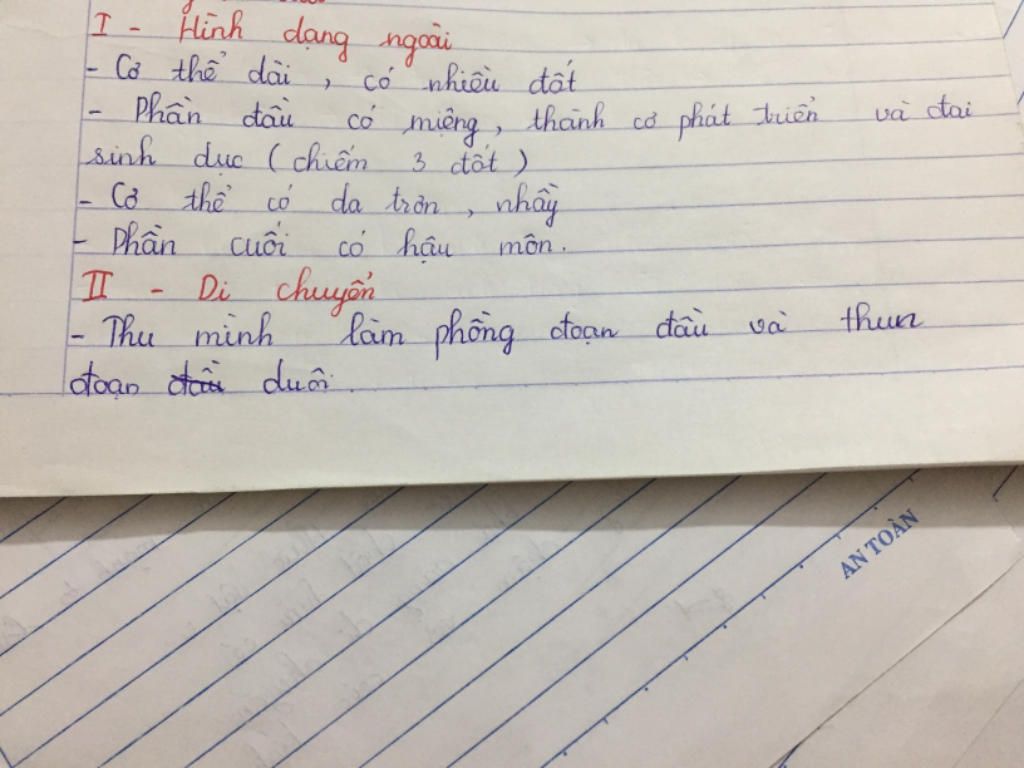 I - Hình dạng ngoài
- Cơ thể dài, có nhiều đốt
- Phần đầu có miệng, thành cơ phát triển và đai
sinh dục (chiếm 3 đốt)
- Cơ thể có da trơn, nhầy
- Phần cuối có hậu môn.
II - Di chuyển
- Thu mình làm phồng đoạn đầu và thun
đoạn đầu đuôi.
AN TOÀN